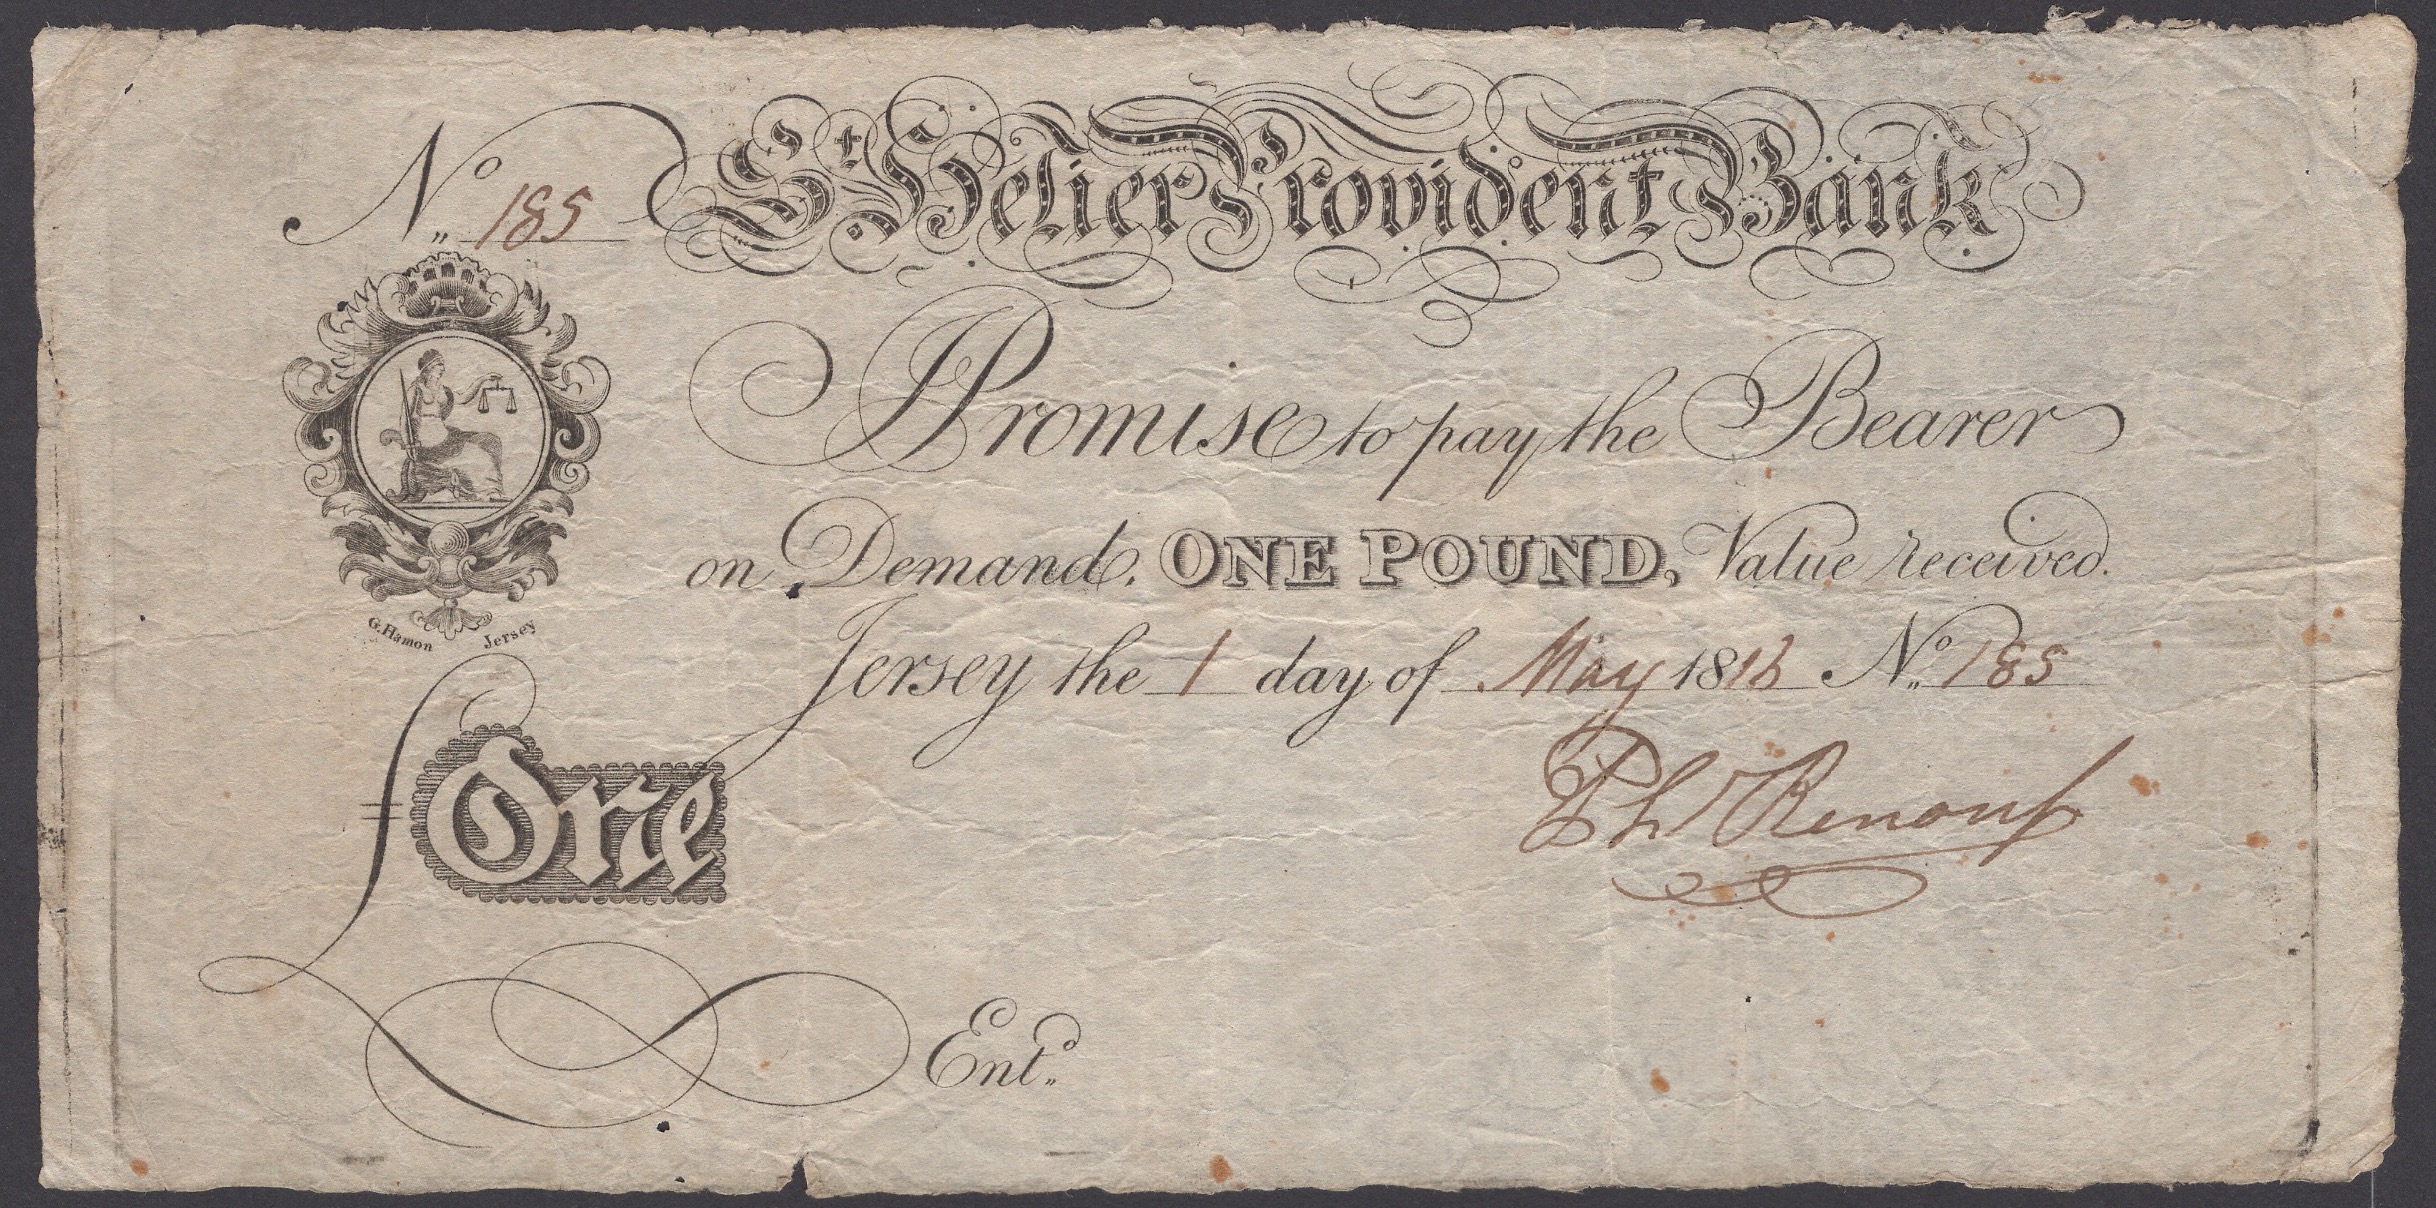 No 185
St. Helier Provident Bank
I Promise to pay the Bearer
on Demand. ONE POUND, Value received.
G. Hamon Jersey
Jersey the 1 day of May 1818 No 185
£ One
Ph Renouf
Entd